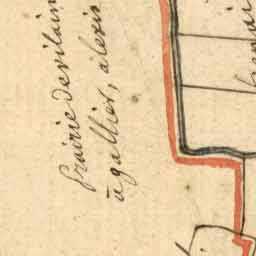 Prairie de vilain
a gallier, alexis